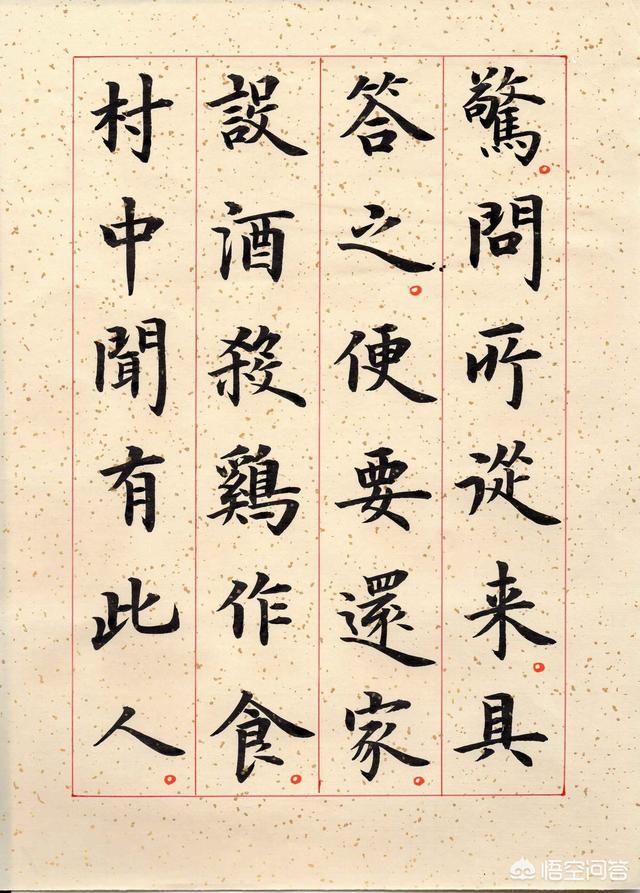 驚。問所從来。具
答之。便要還家。
設酒殺鷄作食。
村中聞有此人。
悟空问答